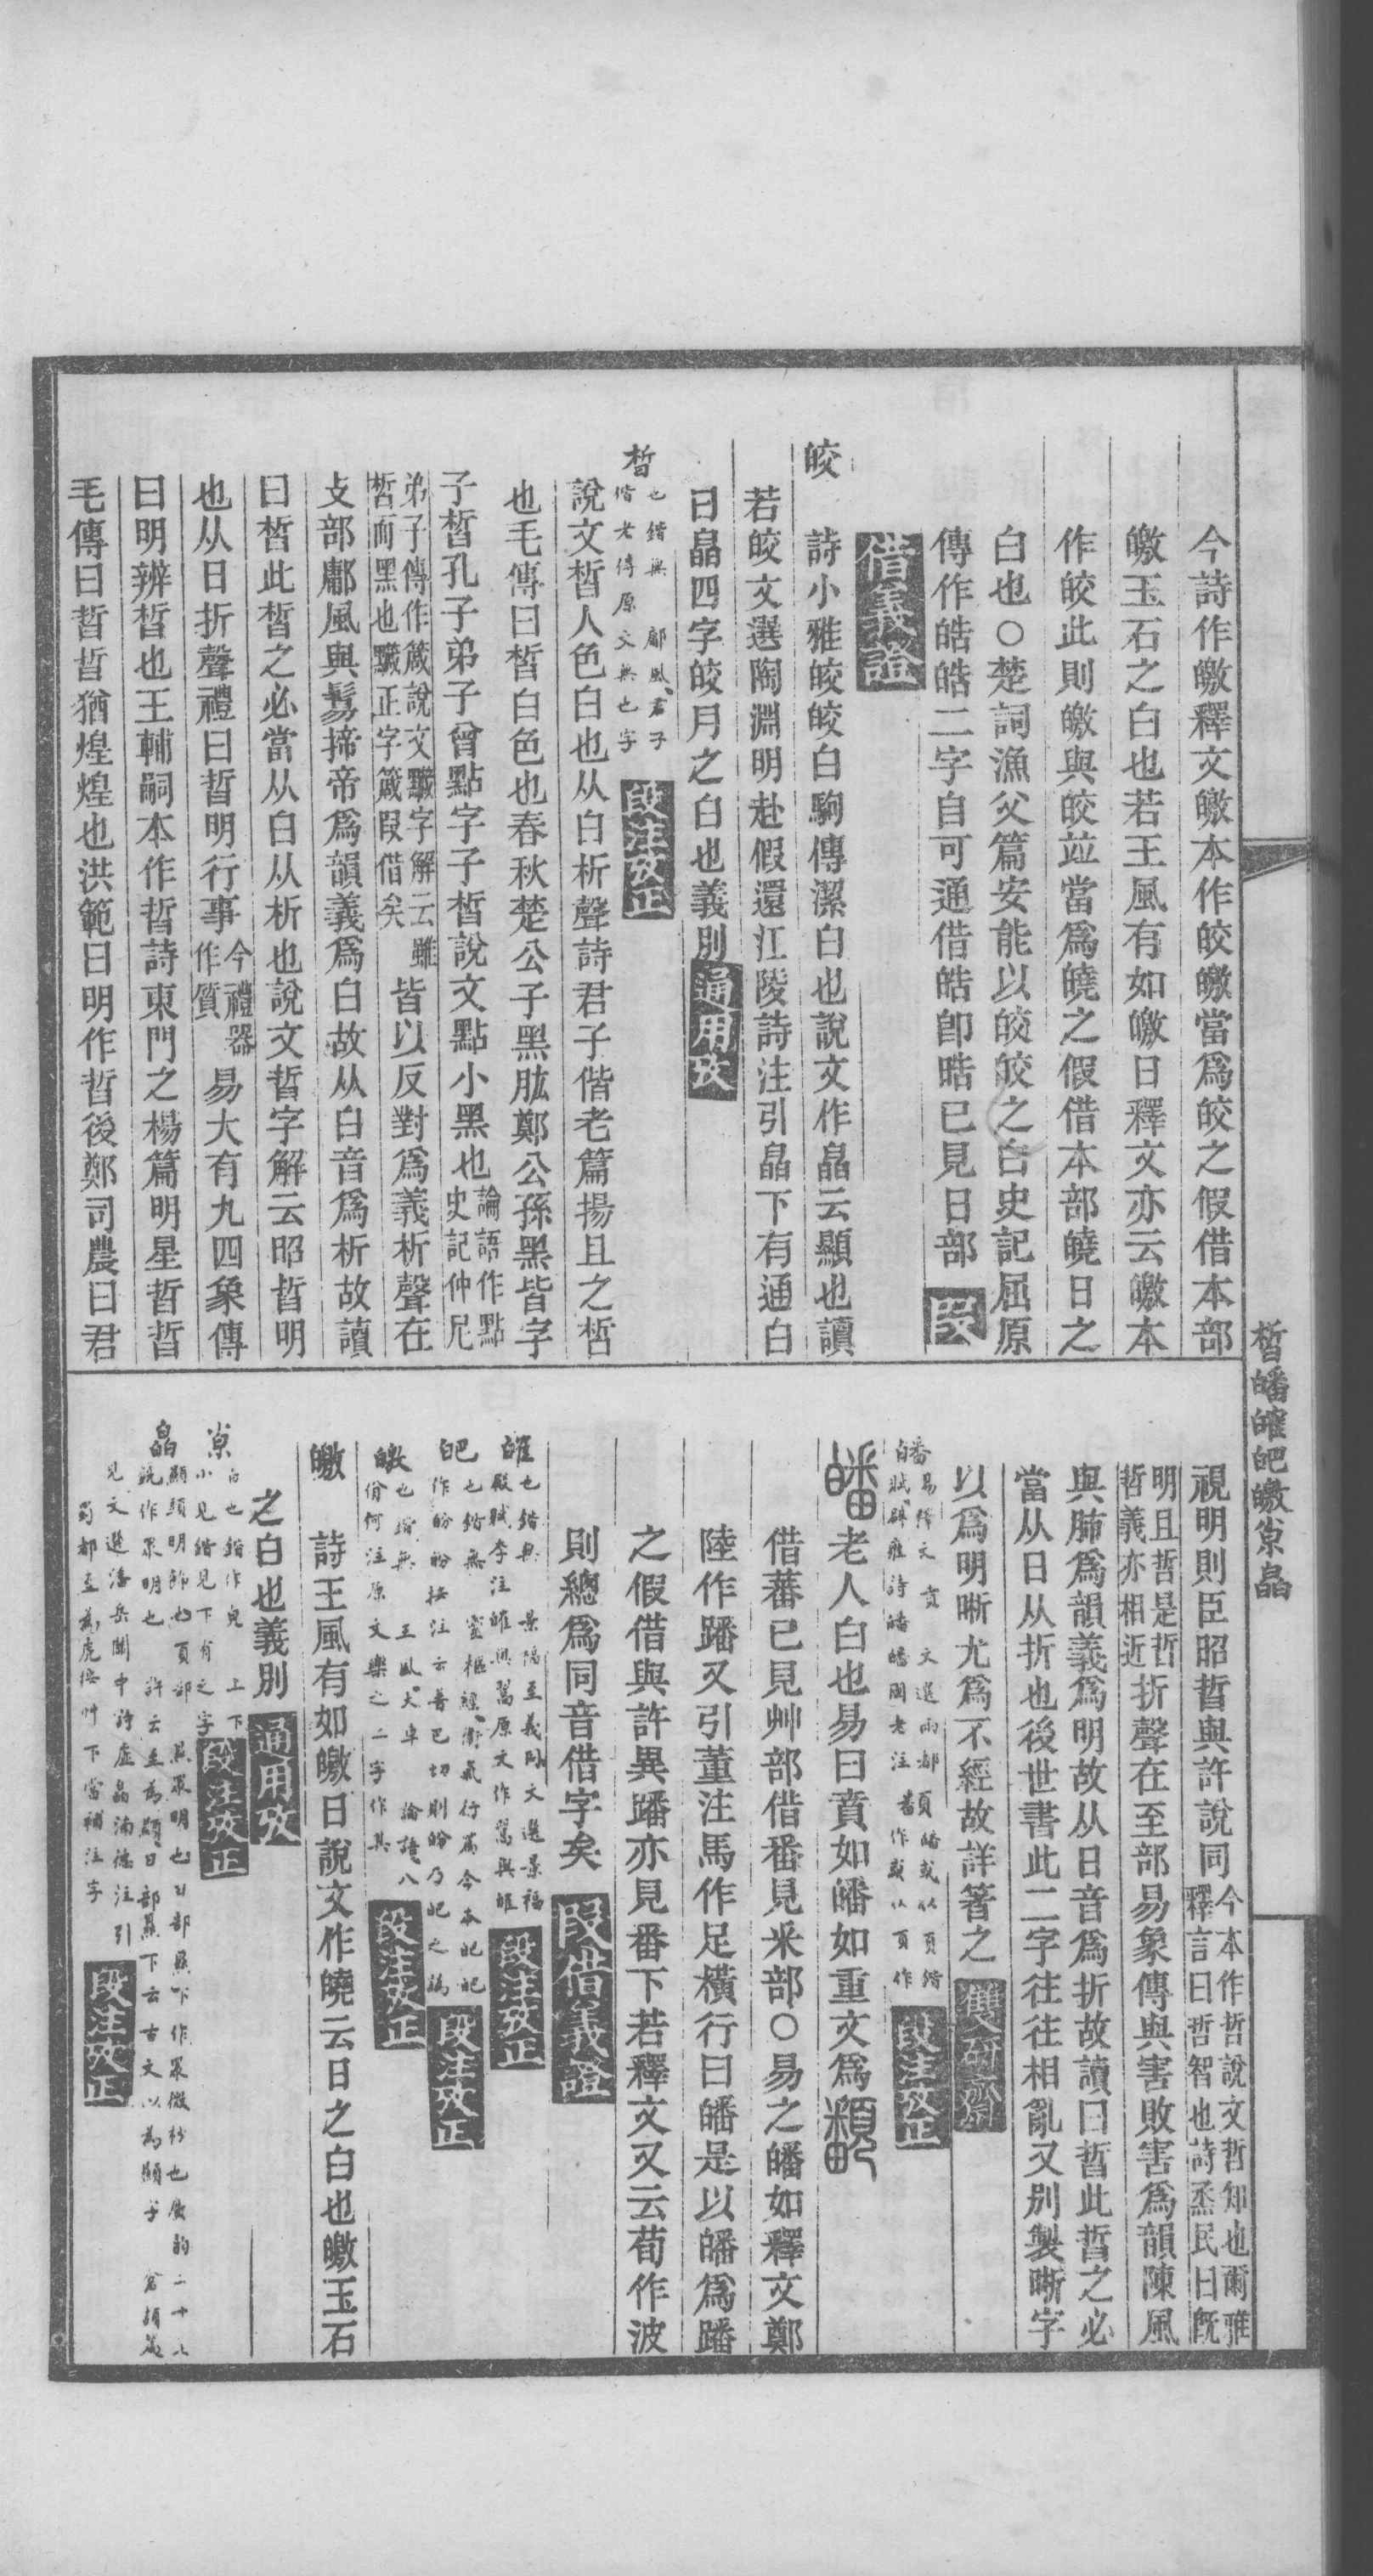 今詩作皦釋文皦本作皎皦當爲皎之假借本部
皦玉石之白也若王風有如皦日釋文亦云皦本
作皎此則皦與皎竝當爲曉之假借本部曉日之
白也○楚詞漁父篇安能以皎皎之白史記屈原
傳作皓皓二字自可通借皓卽晧已見日部 叚
借義證
皎
詩小雅皎皎白駒傳潔白也說文作皛云顯也讀
若皎文選陶淵明赴假還江陵詩注引皛下有通白
曰皛四字皎月之白也義別 通用攷
晳
也鍇無 鄘風君子
偕老傳原文無也字 段注攷正
說文晳人色白也从白析聲詩君子偕老篇揚且之晳
也毛傳曰晳白色也春秋楚公子黑肱鄭公孫黑皆字
子晳孔子弟子曾點字子晳說文點小黑也論語作點
史記仲尼
弟子傳作蒧說文黬字解云雖
晳而黑也黬正字蒧叚借矣
皆以反對爲義析聲在
攴部鄘風與髢揥帝爲韻義爲白故从白音爲析故讀
曰晳此晳之必當从白从析也說文晢字解云昭晢明
也从日折聲禮曰晢明行事今禮器
作質
易大有九四象傳
曰明辨晢也王輔嗣本作晢詩東門之楊篇明星晢晢
毛傳曰晢晢猶煌煌也洪範曰明作晢後鄭司農曰君
晳皤㿥皅皦𡭴皛
視明則臣昭晢與許說同今本作哲說文哲知也爾雅
釋言曰哲智也詩烝民曰旣
明且哲是哲
晢義亦相近
折聲在至部易象傳與害敗害爲韻陳風
與肺爲韻義爲明故从日音爲折故讀曰晢此晢之必
當从日从折也後世書此二字往往相亂又別製晰字
以爲明晰尤爲不經故詳箸之 雙硏齋
皤
老人白也易曰賁如皤如重文爲䫏
借蕃已見艸部借番見釆部○易之皤如釋文鄭
陸作蹯又引董注馬作足橫行曰皤是以皤爲蹯
之假借與許異蹯亦見番下若釋文又云荀作波
則總爲同音借字矣 叚借義證
㿥
段注攷正
皅
段注攷正
皦
也鍇無 王風大車 論語八
佾何注原文樂之二字作其 段注攷正
皦
詩王風有如皦日說文作曉云日之白也皦玉石
之白也義別 通用攷
𡭴
段注攷正
皛
見文選潘岳關中詩虛皛湳德注引
蜀都至爲虎 段注攷正